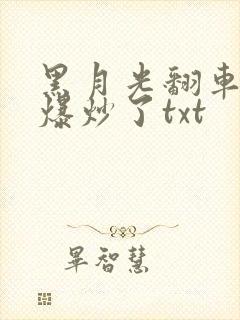 黑月光翻車
爆炒了txt
畢智慧